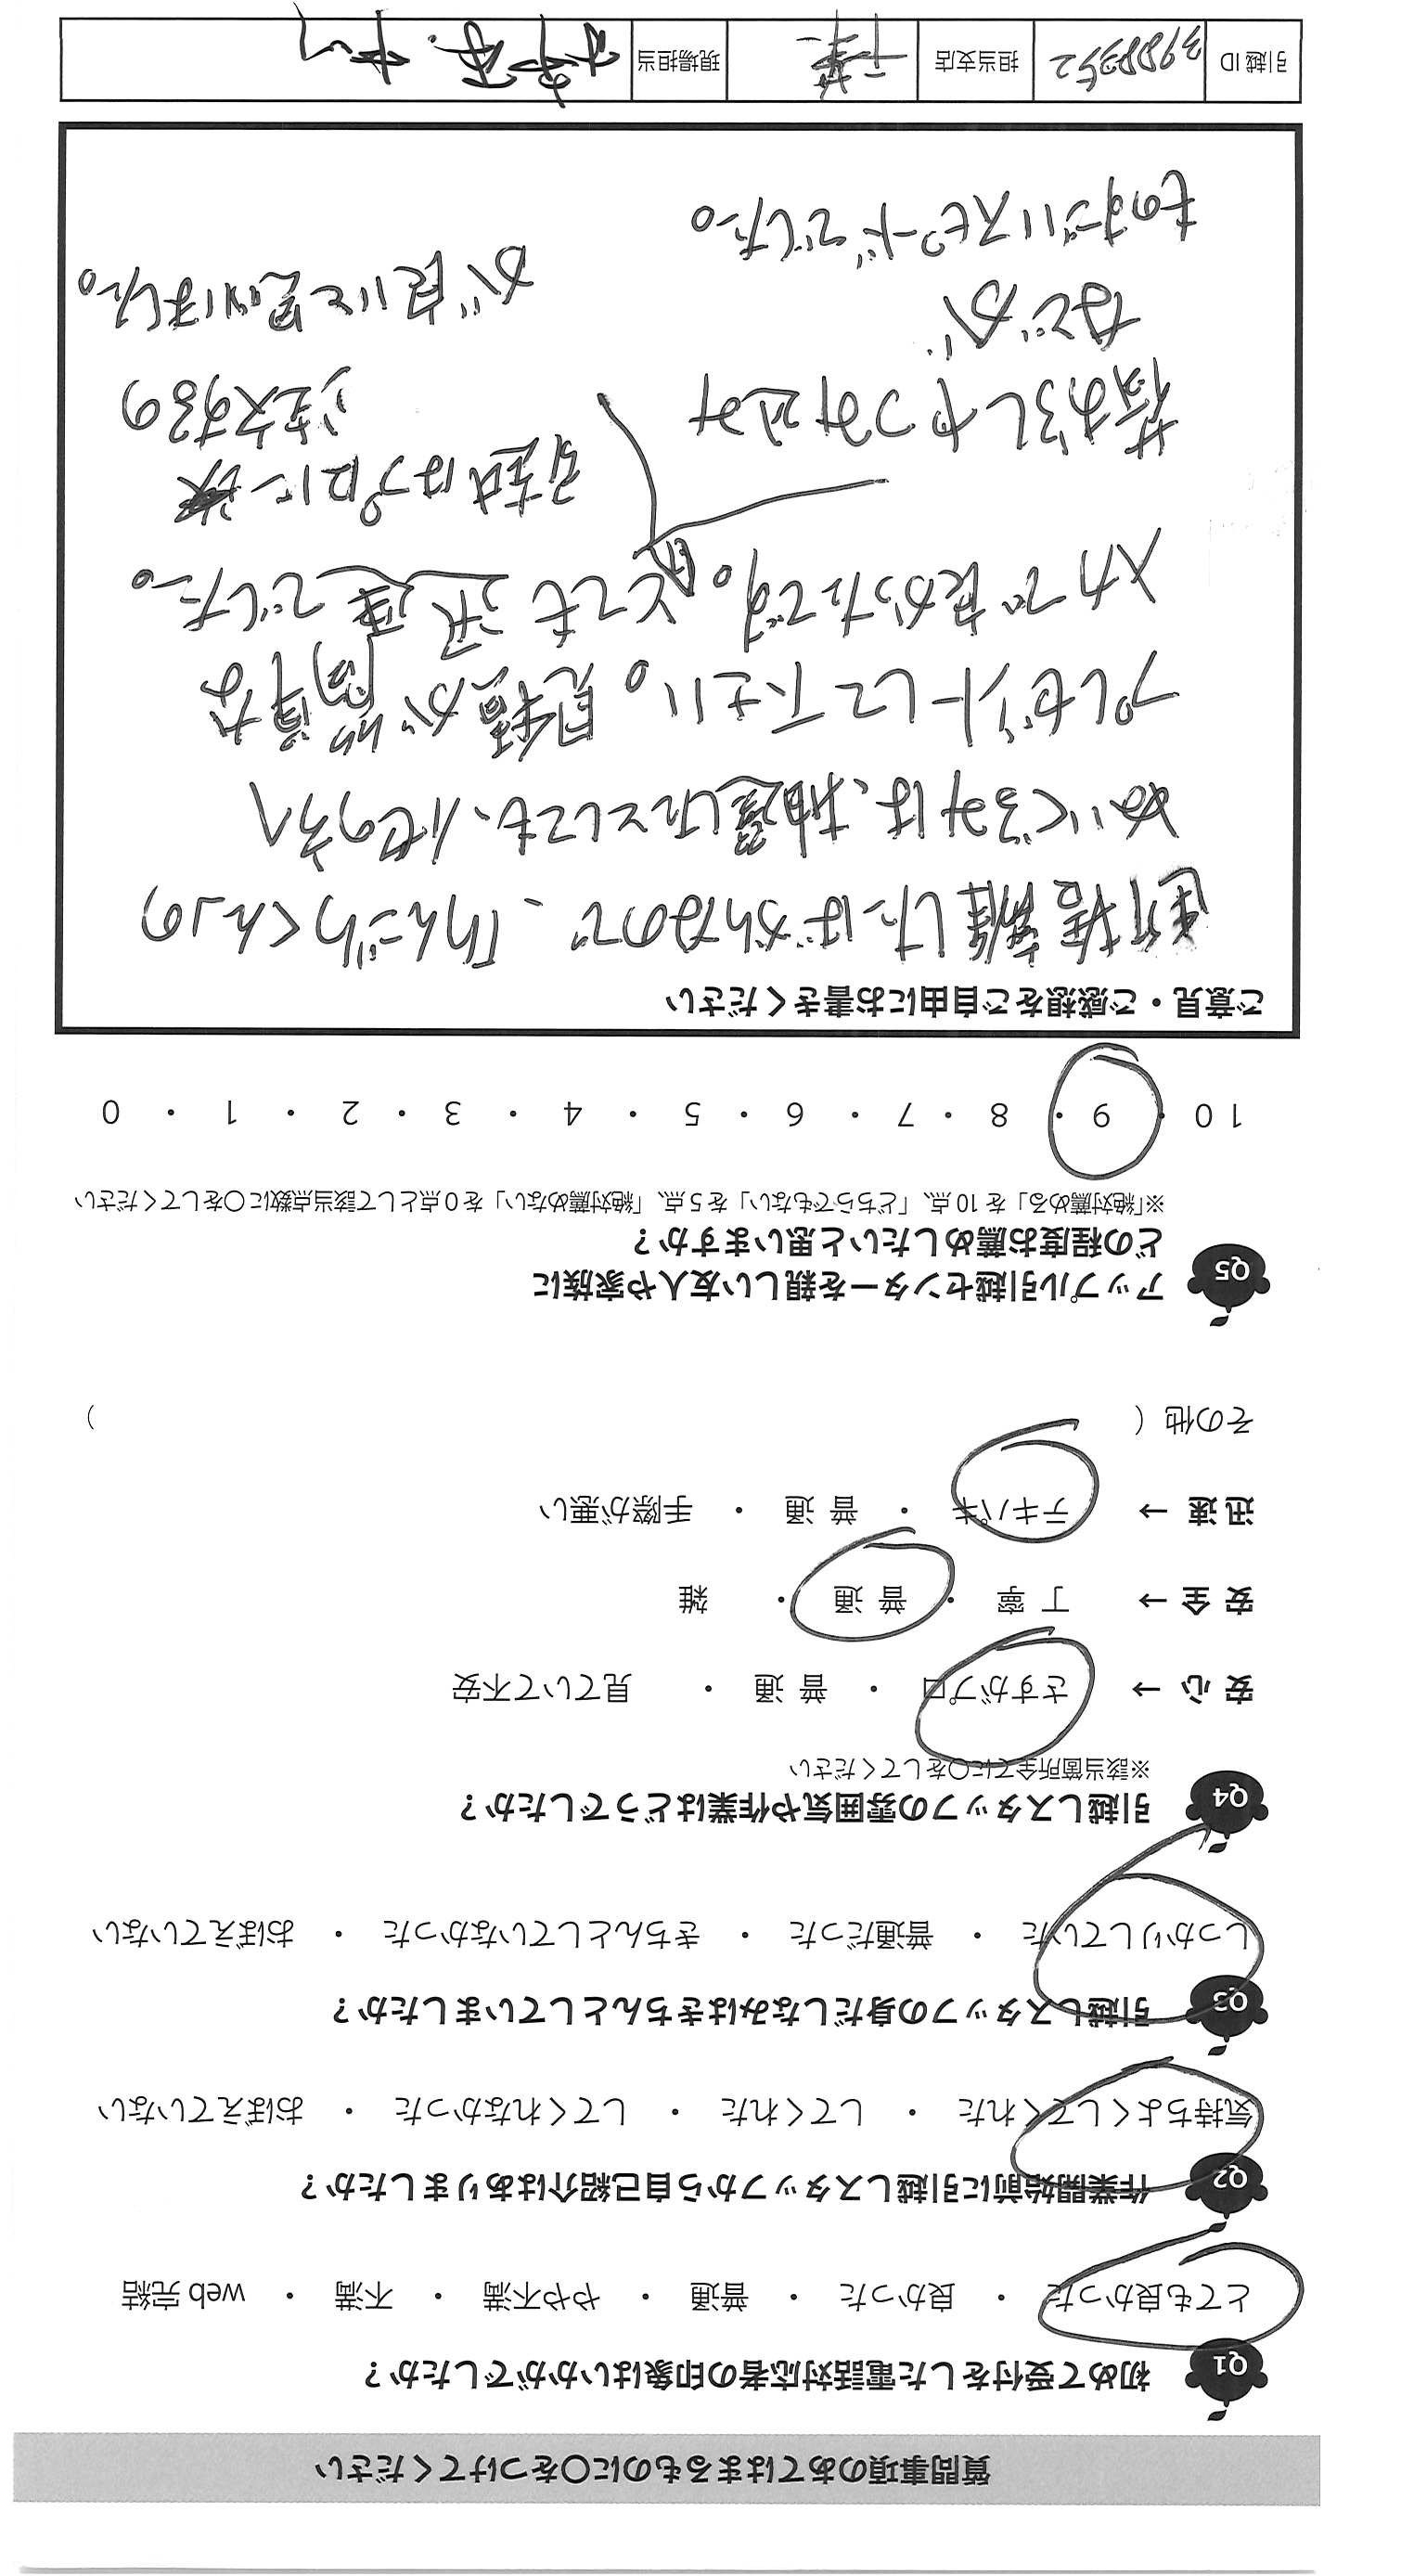 質問事項のあてはまるものに〇をつけてください
Q1 初めて受付をした電話対応者の印象はいかがでしたか？
とても良かった ・ 良かった ・ 普通 ・ やや不満 ・ 不満 ・ web 完結
Q2 作業開始前に引越しスタッフから自己紹介はありましたか？
気持ちよくしてくれた ・ してくれた ・ してくれなかった ・ おぼえていない
Q3 引越しスタッフの身だしなみはきちんとしていましたか？
しっかりしていた ・ 普通だった ・ きちんとしていなかった ・ おぼえていない
Q4 引越しスタッフの雰囲気や作業はどうでしたか？
※該当箇所全てに〇をしてください
安 心 → さすがプロ ・ 普 通 ・ 見ていて不安
安 全 → 丁 寧 ・ 普 通 ・ 雑
迅 速 → テキパキ ・ 普 通 ・ 手際が悪い
その他（ ）
Q5 アップル引越センターを親しい友人や家族に
どの程度お薦めしたいと思いますか？
※「絶対薦める」を 10 点、「どちらでもない」を 5 点、「絶対薦めない」を 0 点として該当点数に〇をしてください
10 ・ 9 ・ 8 ・ 7 ・ 6 ・ 5 ・ 4 ・ 3 ・ 2 ・ 1 ・ 0
ご意見・ご感想をご自由にお書きください
断捨離したばかりなので、「りんごりくん」の
ぬいぐるみは、抽選したとしても、他の方へ
プレゼントして下さい。見積が簡単な
入力で良かったです。とても迅速でした。
荷おろしやつみ込み
などが
ものすごいスピードでした。
引越はプロに
注文するの
が良いと思いました。
引越 ID 担当支店 千葉 現場担当